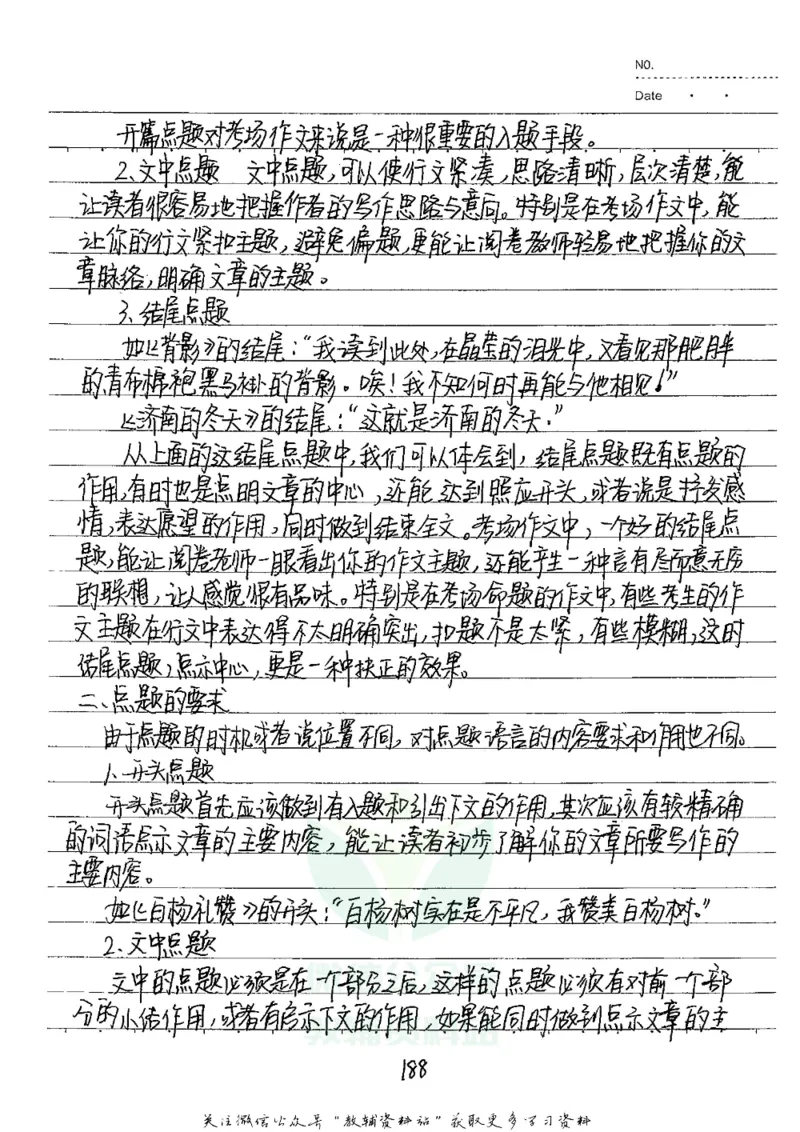 NO.
Date · ·
开篇点题对考场作文来说是一种很重要的入题手段。
2、文中点题 文中点题,可以使行文紧凑,思路清晰,层次清楚,能
让读者很容易地把握作者的写作思路与意向。特别是在考场作文中,能
让你的行文紧扣主题,避免偏题,更能让阅卷教师轻易地把握你的文
章脉络,明确文章的主题。
3、结尾点题
如《背影》的结尾:“我读到此处,在晶莹的泪光中,又看见那肥胖
的青布棉袍黑马褂的背影。唉!我不知何时再能与他相见!”
《济南的冬天》的结尾:“这就是济南的冬天.”
从上面的这结尾点题中,我们可以体会到,结尾点题既有点题的
作用,有时也是点明文章的中心,还能达到照应开头,或者说是抒发感
情,表达愿望的作用,同时做到结束全文。考场作文中,一个好的结尾点
题,能让阅卷老师一眼看出你的作文主题,还能产生一种言有尽而意无穷
的联想,让人感觉很有品味。特别是在考场命题的作文中,有些考生的作
文主题在行文中表达得不太明确突出,扣题不是太紧,有些模糊,这时
结尾点题,点示中心,更是一种扶正的效果。
二、点题的要求
由于点题的时机或者说位置不同,对点题语言的内容要求和作用也不同。
1、开头点题
开头点题首先应该做到有入题和引出下文的作用,其次应该有较精确
的词语点示文章的主要内容,能让读者初步了解你的文章所要写作的
主要内容。
如《白杨礼赞》的开头:“白杨树实在是不平凡,我赞美白杨树。”
2、文中点题
文中的点题必须是在一个部分之后,这样的点题必须有对前一个部
分的小结作用,或者有启示下文的作用,如果能同时做到点示文章的主
188
关注微信公众号“教辅资料站”获取更多学习资料
教辅资料站